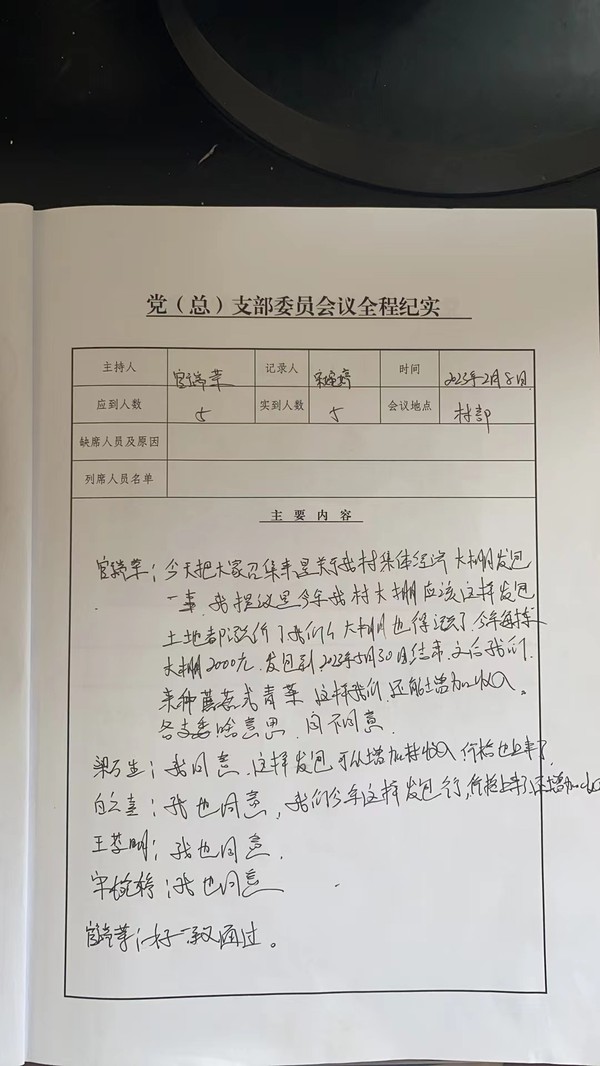 党（总）支部委员会议全程纪实
主持人 官瑞荣 记录人 时间 2023年2月8日
应到人数 5 实到人数 5 会议地点 村部
缺席人员及原因
列席人员名单
主要内容
官瑞荣：今天把大家召集来是关于我村集体经济大棚发包
一事，我提议是今年我村大棚应该这样发包
土地都涨价了我们大棚也得涨了今年每栋
大棚2000元，发包到2023年5月30日结束，之后我们
来种 或青菜 这样我们还能增加收入。
各支委啥意思，同不同意
：我同意，这样发包可以增加村收入价格也上来了
：我也同意，我们今年这样发包行，价格上来了，还增加收入
：我也同意，
：我也同意
官瑞荣：好一致通过。